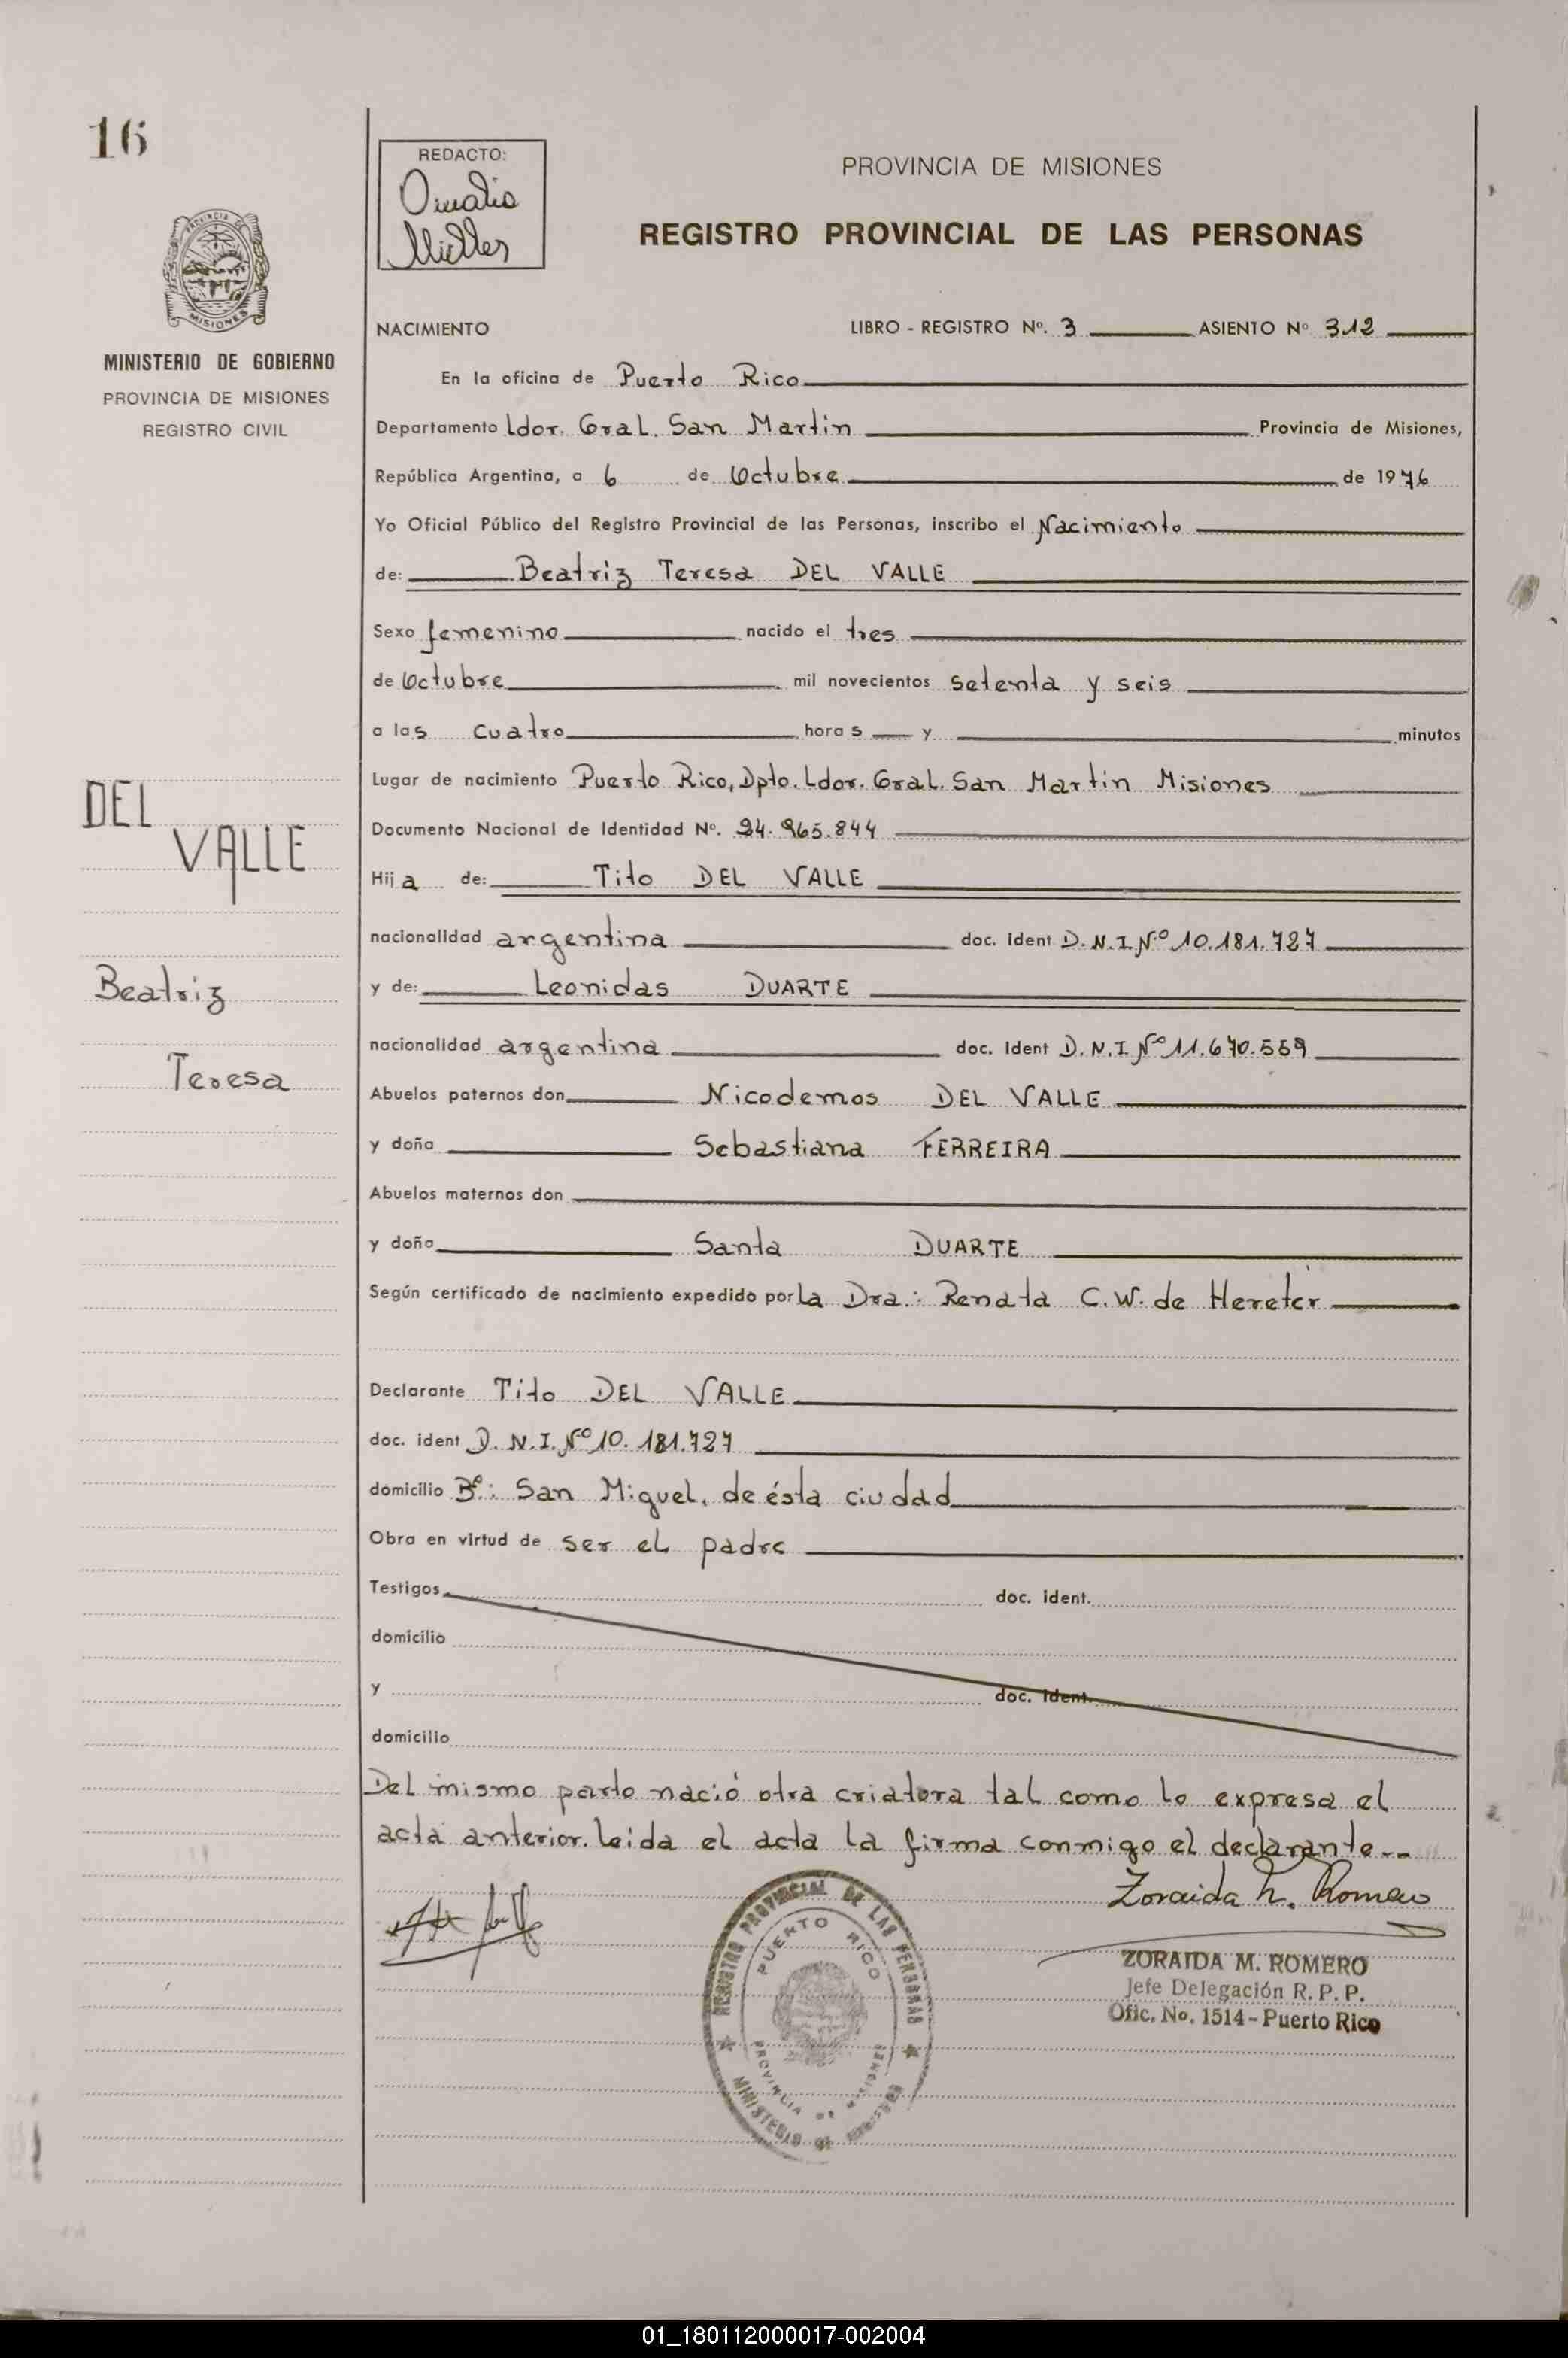 16
REDACTO:
PROVINCIA DE MISIONES
REGISTRO PROVINCIAL DE LAS PERSONAS
MISIONES
MINISTERIO DE GOBIERNO
PROVINCIA DE MISIONES
REGISTRO CIVIL
NACIMIENTO LIBRO - REGISTRO Nº. 3 ASIENTO Nº 312
En la oficina de Puerto Rico
Departamento Ldor. Gral. San Martin Provincia de Misiones,
República Argentina, a 6 de Octubre de 1976
Yo Oficial Público del Registro Provincial de las Personas, inscribo el Nacimiento
de: Beatriz Teresa DEL VALLE
Sexo femenino nacido el tres
de Octubre mil novecientos setenta y seis
a las cuatro horas y minutos
Lugar de nacimiento Puerto Rico, Dpto. Ldor. Gral. San Martin Misiones
Documento Nacional de Identidad Nº. 24.965.844
Hija de: Tito DEL VALLE
nacionalidad argentina doc. ident D.N.I Nº 10.181.727
y de: Leonidas DUARTE
nacionalidad argentina doc. Ident D.N.I Nº 11.670.559
Abuelos paternos don Nicodemos DEL VALLE
y doña Sebastiana FERREIRA
Abuelos maternos don
y doña Santa DUARTE
Según certificado de nacimiento expedido por la Dra.: Renata C.W. de Hereter
Declarante Tito DEL VALLE
doc. ident D.N.I. Nº 10.181.727
domicilio Bº: San Miguel, de ésta ciudad
Obra en virtud de ser el padre
Testigos doc. ident.
domicilio
y doc. ident.
domicilio
Del mismo parto nació otra criatura tal como lo expresa el
acta anterior. leida el acta la firma conmigo el declarante..-
DEL
VALLE
Beatriz
Teresa
Zoraida M. Romero
ZORAIDA M. ROMERO
Jefe Delegación R. P. P.
Ofic. No. 1514 - Puerto Rico
REGISTRO PROVINCIAL DE LAS PERSONAS
PUERTO RICO
PROVINCIA DE MISIONES
MINISTERIO DE
01_180112000017-002004